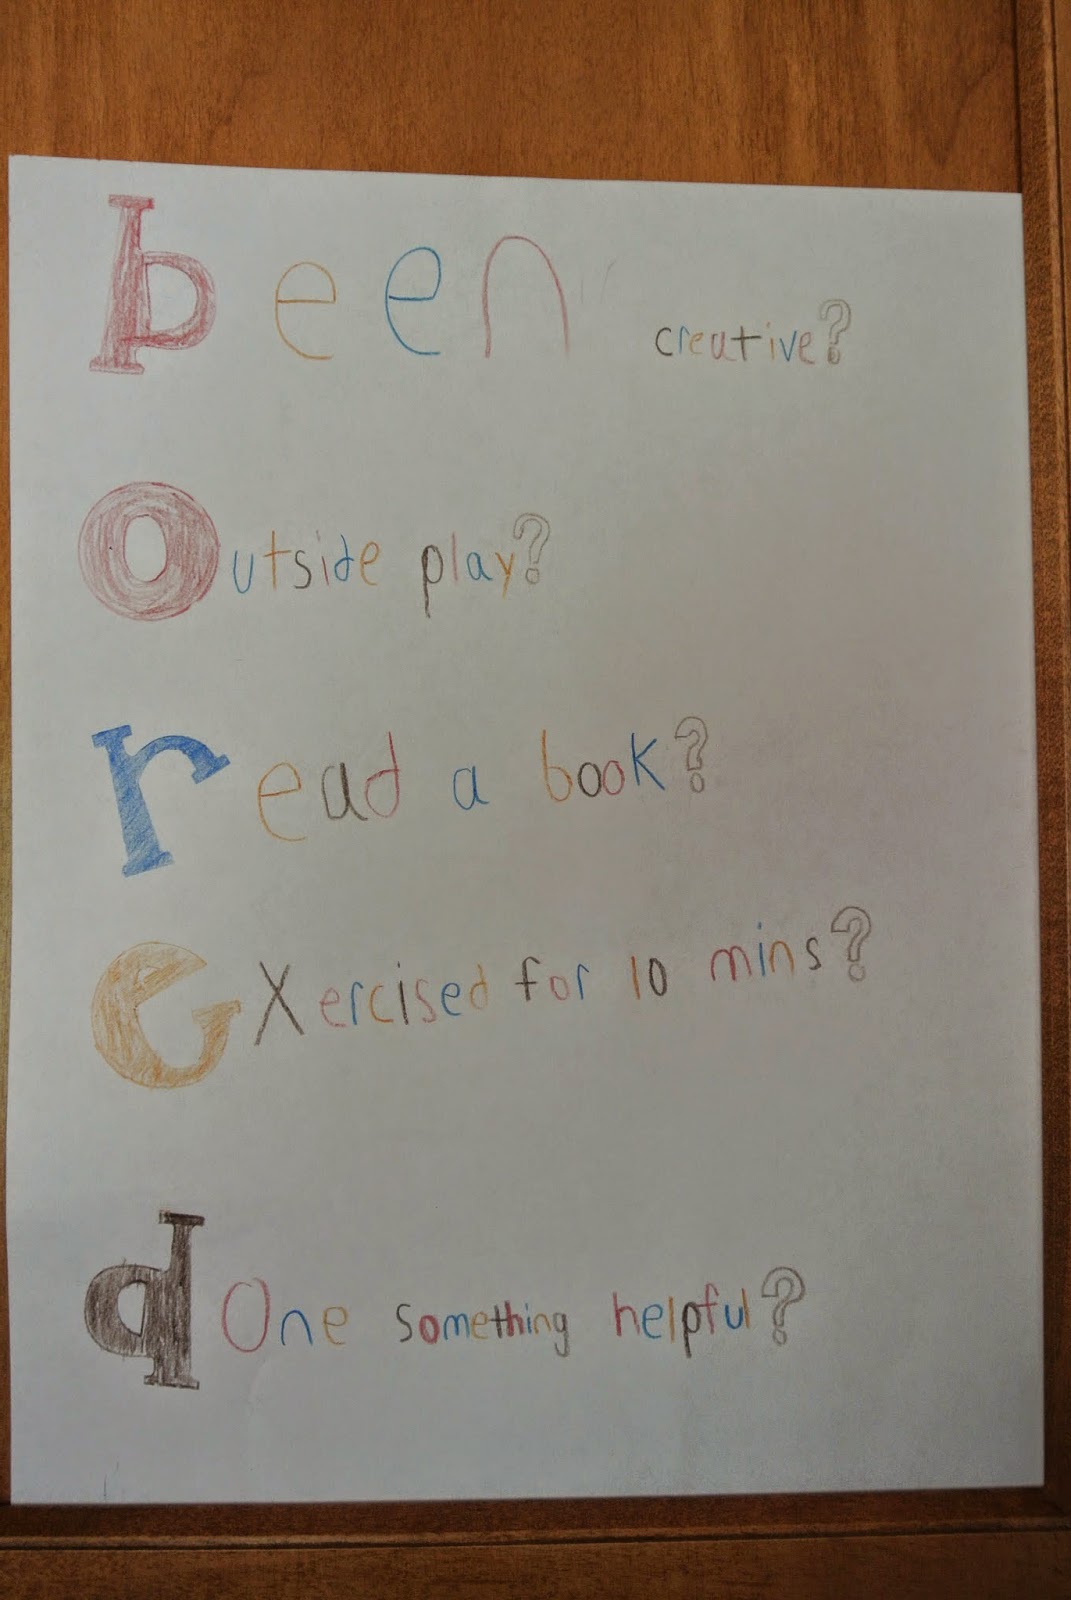 been creative?
Outside play?
read a book?
eXercised for 10 mins?
dOne something helpful?